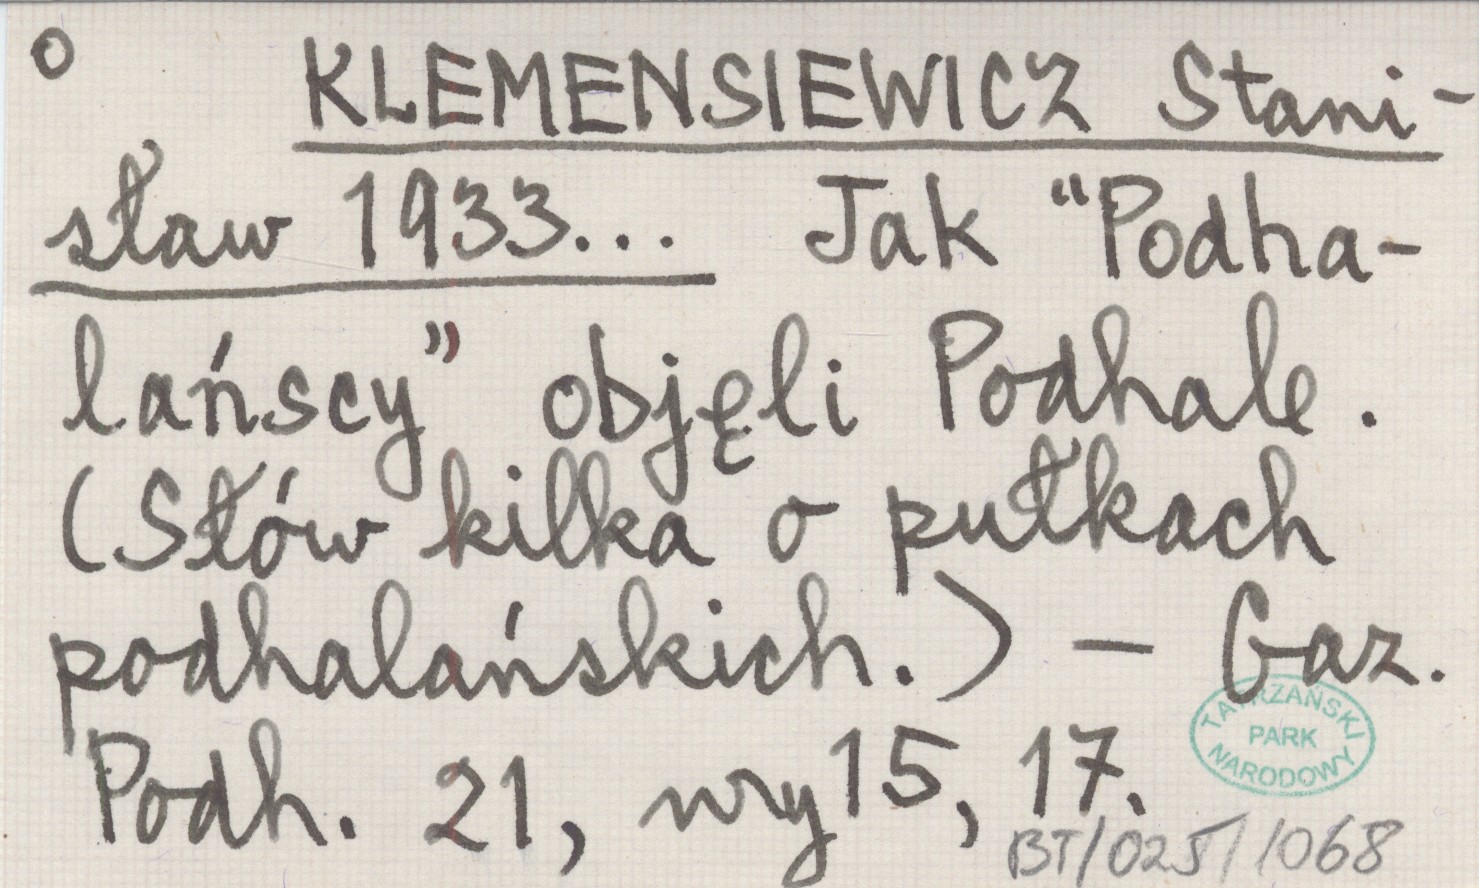 o KLEMENSIEWICZ Stani-
sław 1933... Jak "Podha-
lańscy" objęli Podhale.
(Słów kilka o pułkach
podhalańskich.) — Gaz.
Podh. 21, nry 15, 17.
TATRZAŃSKI
PARK
NARODOWY
BT/025/1068